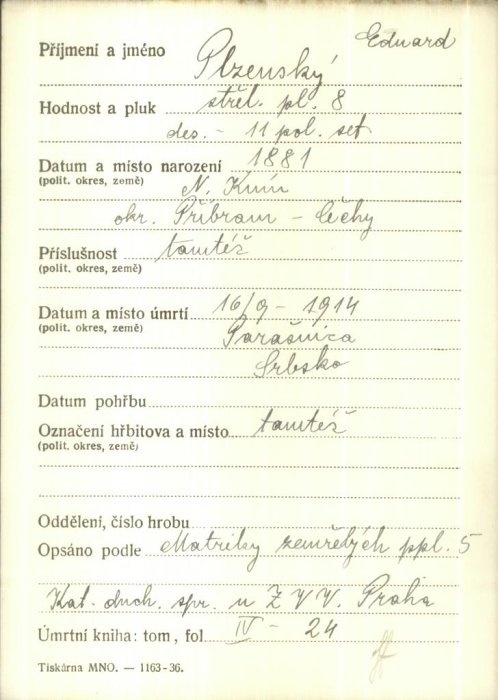 Eduard
Příjmení a jméno Plzenský
Hodnost a pluk střel. pl. 8
des. - 11 pol. set
Datum a místo narození 1881
(polit. okres, země) N. Knín
okr. Příbram - Čechy
Příslušnost tamtéž
(polit. okres, země)
Datum a místo úmrtí 16/9 - 1914
(polit. okres, země) Parašnica
Srbsko
Datum pohřbu
Označení hřbitova a místo tamtéž
(polit. okres, země)
Oddělení, číslo hrobu
Opsáno podle Matriky zemřelých ppl. 5
Kat. duch. spr. u Z V V. Praha
Úmrtní kniha: tom, fol IV - 24
Tiskárna MNO. — 1163-36.